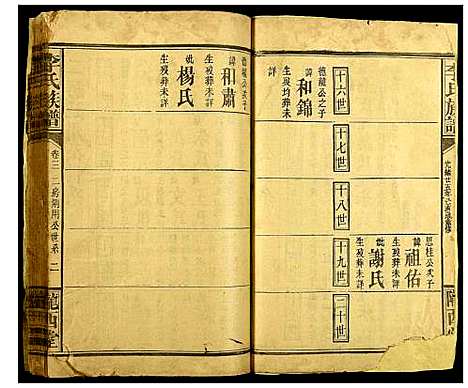 李氏族譜
光緒廿五年
隴西堂
十六世
十七世
十八世
十九世
二十世
德龍公之子
諱和錦
生歿均葬未詳
思桂公次子
諱祖佑
生歿葬未詳
妣謝氏
生歿葬未詳
諱和肅
生歿葬未詳
妣楊氏
生歿葬未詳
李氏族譜
卷三
公世系
二
隴西堂